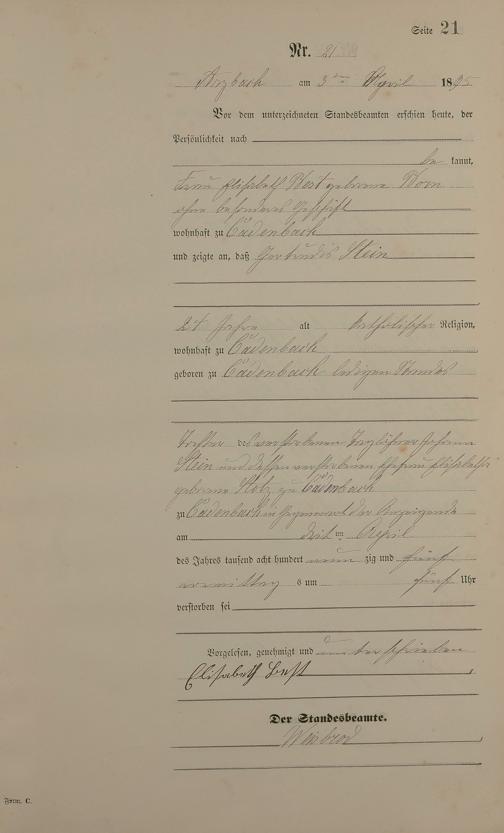 Seite 21
Nr. 21
Arzbach am 3ten April 1895
Vor dem unterzeichneten Standesbeamten erschien heute, der
Persönlichkeit nach
be kannt,
Frau Elisabeth Best geborene Korn
ohne besonderes Geschäft
wohnhaft zu Cadenbach
und zeigte an, daß Gertrudis Stein
24 Jahre alt katholischer Religion,
wohnhaft zu Cadenbach
geboren zu Cadenbach ledigen Standes
Tochter des verstorbenen Taglöhners Johann
Stein und dessen verstorbenen Ehefrau Elisabetha
geborene Holz zu Cadenbach
zu Cadenbach in Gegenwart der Anzeigende
am April
des Jahres tausend acht hundert neun zig und fünf
vormittag s um fünf Uhr
verstorben sei
Vorgelesen, genehmigt und unterschrieben
Elisabeth Best
Der Standesbeamte.
Form. C.